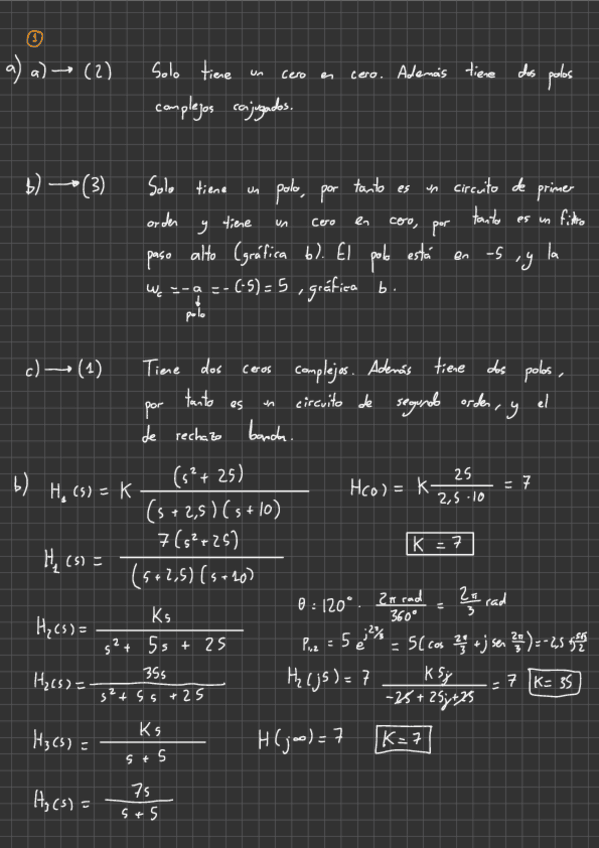 1
a) a) → (2) Solo tiene un cero en cero. Además tiene dos polos
complejos conjugados.
b) → (3) Solo tiene un polo, por tanto es un circuito de primer
orden y tiene un cero en cero, por tanto es un filtro
paso alto (gráfica b). El polo está en -5, y la
ω_c = -a = -(-5) = 5, gráfica b.
polo
c) → (1) Tiene dos ceros complejos. Además tiene dos polos,
por tanto es un circuito de segundo orden, y el
de rechazo banda.
b) H₁(s) = K (s² + 25) / (s + 2,5)(s + 10) H(0) = K 25 / 2,5 · 10 = 7
H₁(s) = 7(s² + 25) / (s + 2,5)(s + 10) K = 7
θ: 120° · 2π rad / 360° = 2π/3 rad
H₂(s) = Ks / s² + 5s + 25 P₁,₂ = 5 e^(j2π/3) = 5(cos 2π/3 + j sen 2π/3) =
H₂(s) = 35s / s² + 5s + 25 H₂(j5) = 7 K5j / -25 + 25j + 25 = 7 K = 35
H₃(s) = Ks / s + 5 H(j∞) = 7 K = 7
H₃(s) = 7s / s + 5